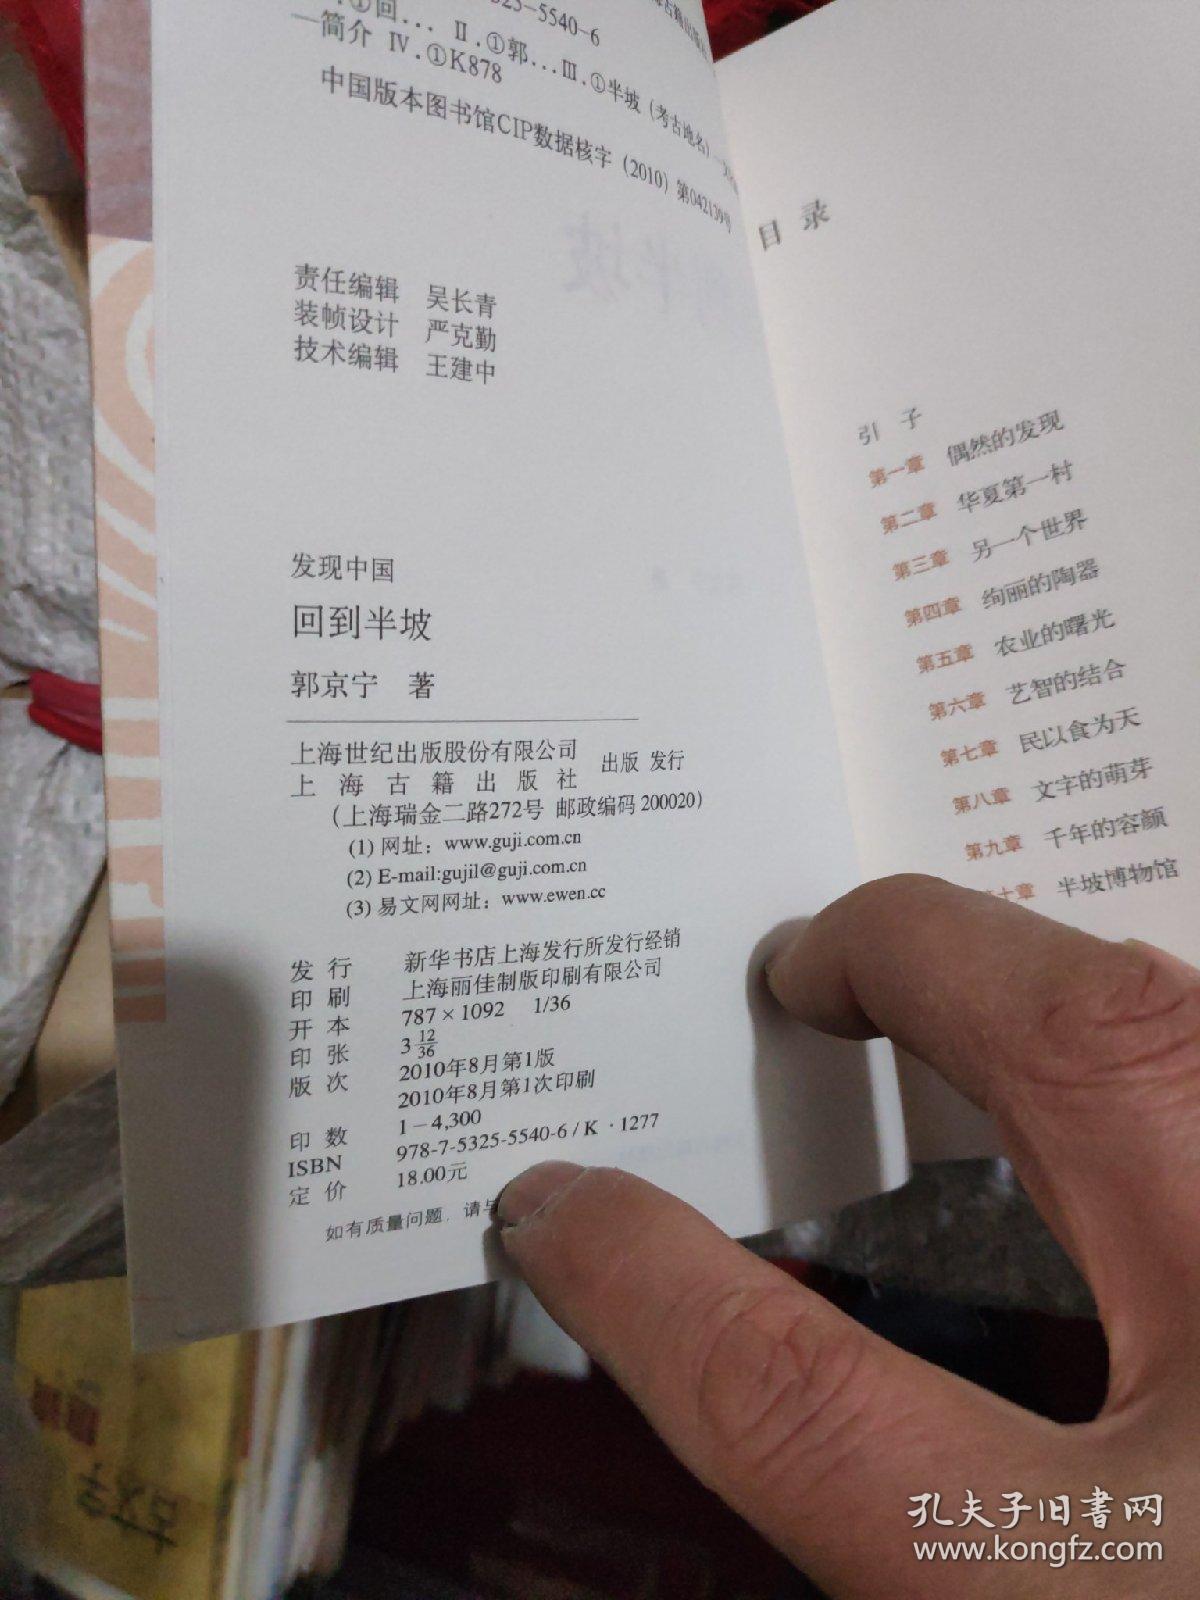 5540-6
①回... Ⅱ.①郭...Ⅲ.①半坡(考古地名)
—简介 Ⅳ.①K878
中国版本图书馆CIP数据核字(2010)第042139号
责任编辑 吴长青
装帧设计 严克勤
技术编辑 王建中
发现中国
回到半坡
郭京宁 著
上海世纪出版股份有限公司
上海古籍出版社 出版 发行
(上海瑞金二路272号 邮政编码200020)
(1) 网址：www.guji.com.cn
(2) E-mail:gujil@guji.com.cn
(3) 易文网网址：www.ewen.cc
发行 新华书店上海发行所发行经销
印刷 上海丽佳制版印刷有限公司
开本 787×1092 1/36
印张 3 12/36
版次 2010年8月第1版
2010年8月第1次印刷
印数 1－4,300
ISBN 978-7-5325-5540-6/K·1277
定价 18.00元
如有质量问题，请与
目录
引子
第一章 偶然的发现
第二章 华夏第一村
第三章 另一个世界
第四章 绚丽的陶器
第五章 农业的曙光
第六章 艺智的结合
第七章 民以食为天
第八章 文字的萌芽
第九章 千年的容颜
十章 半坡博物馆
孔夫子旧书网
www.kongfz.com